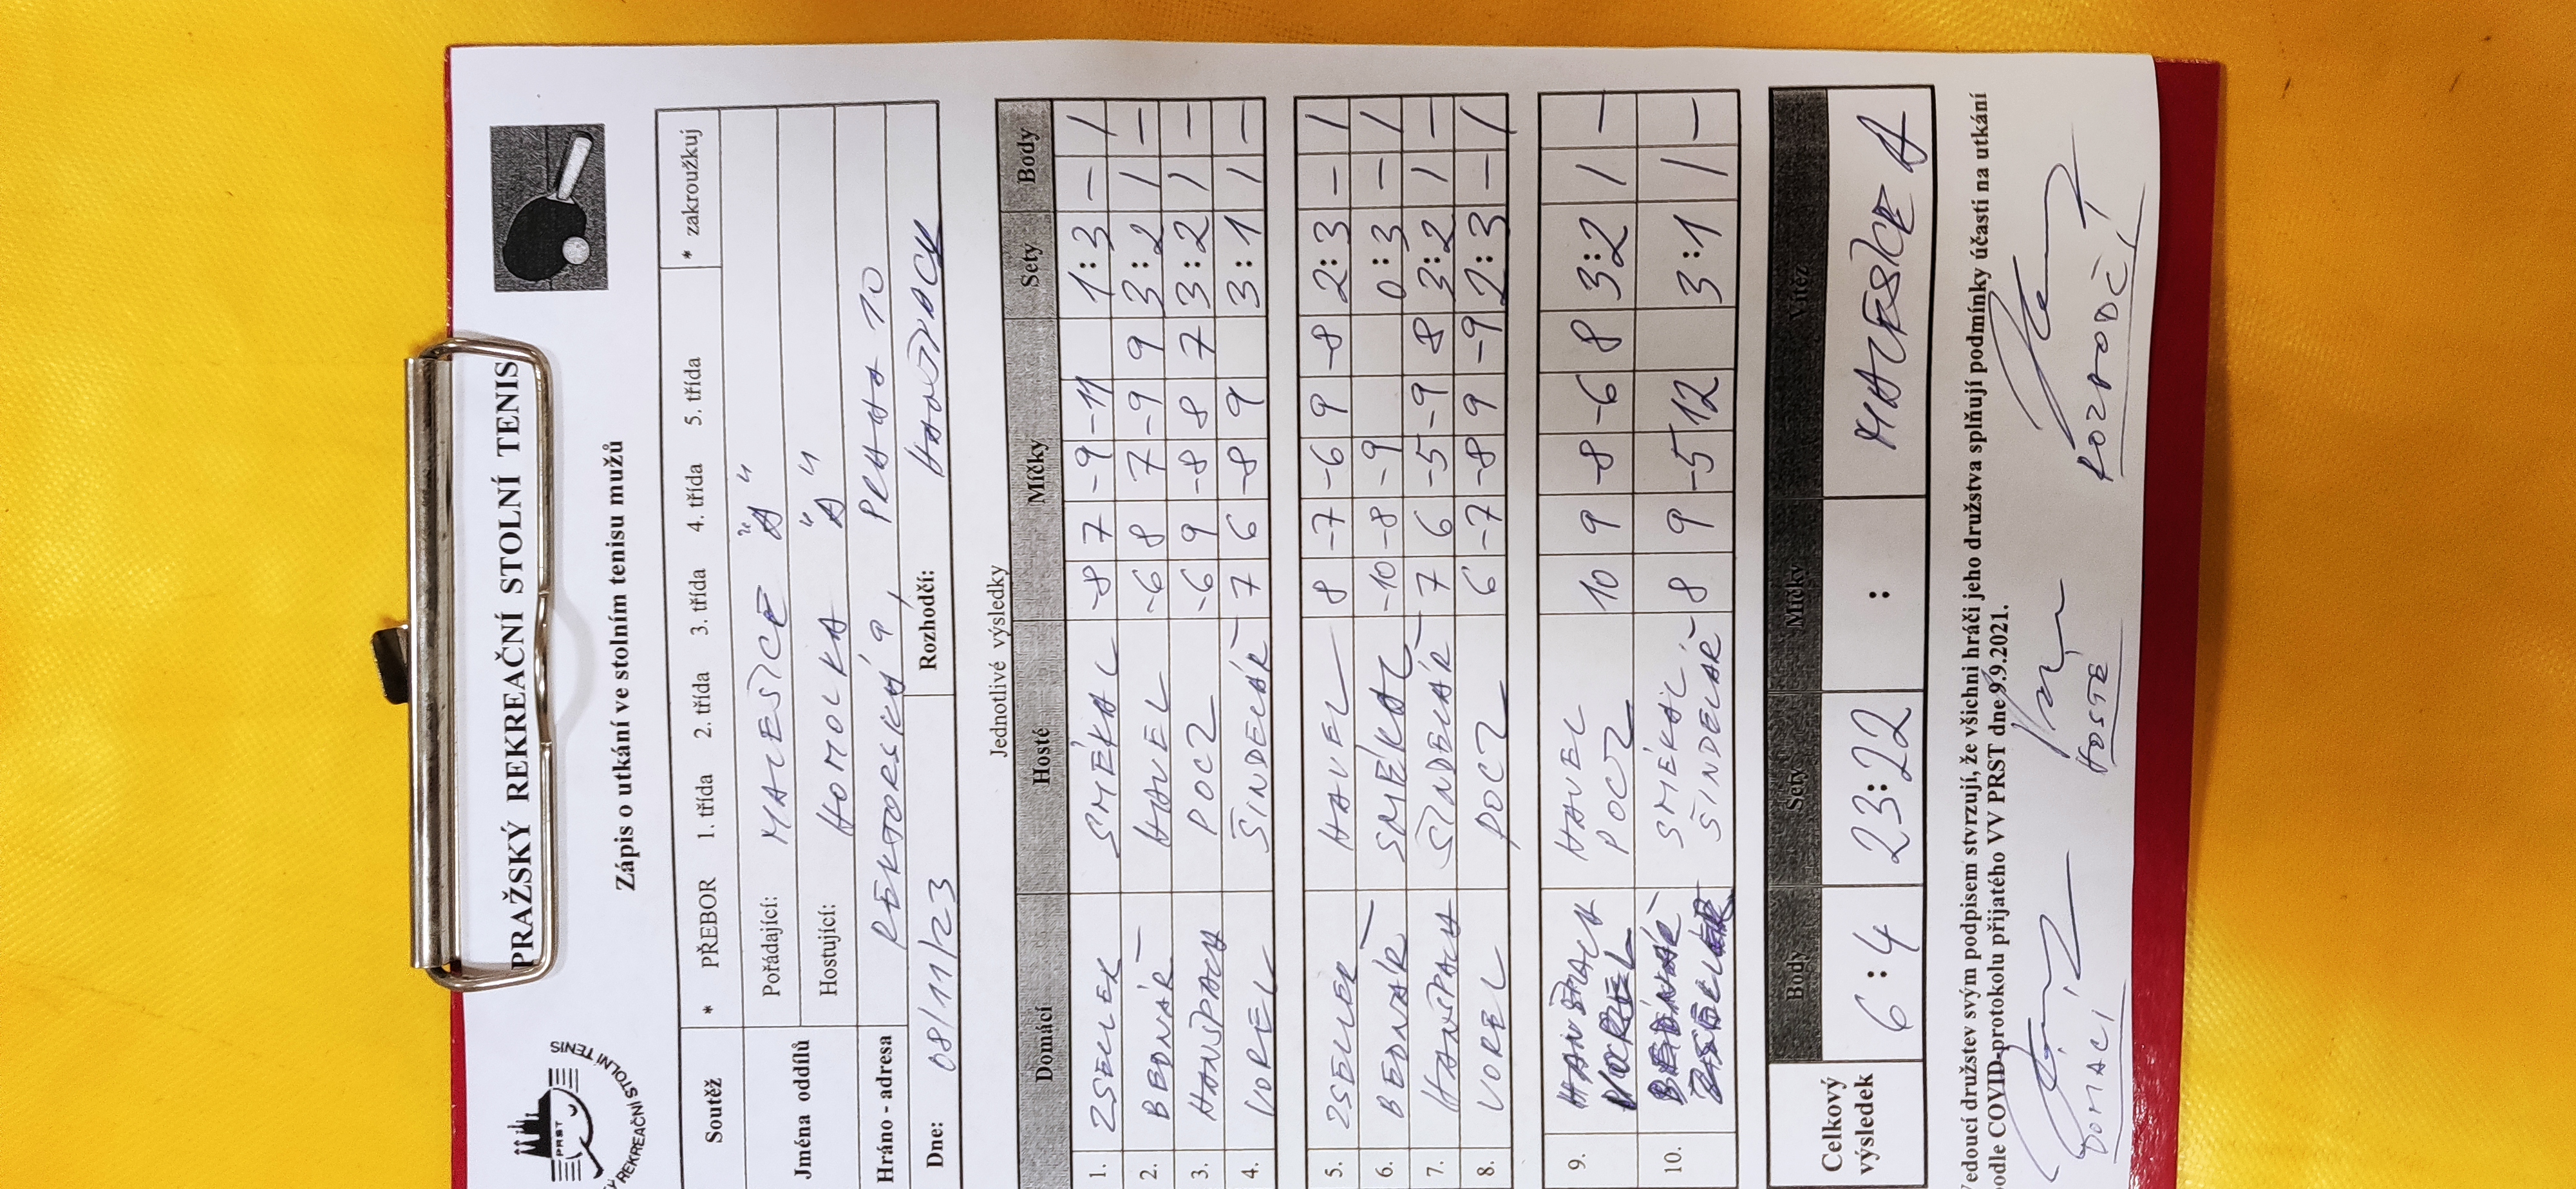 PRAŽSKÝ REKREAČNÍ STOLNÍ TENIS
PRST
REKREAČNÍ STOLNÍ TENIS
Zápis o utkání ve stolním tenisu mužů
Soutěž * PŘEBOR 1. třída 2. třída 3. třída 4. třída 5. třída * zakroužkuj
Jména oddílů Pořádající: MALEŠICE "A"
Hostující: HOMOLKA "A"
Hráno - adresa REKTORSKÁ 9, PRAHA 10
Dne: 08/11/23 Rozhodčí: HANŠPACH
Jednotlivé výsledky
Domácí Hosté Míčky Sety Body
1. ZSELLER SMÉKAL -8 7 -9 -11 1:3 - /
2. BEDNÁŘ HAVEL -6 8 7 -9 9 3:2 / -
3. HANŠPACH POCZ -6 9 -8 8 7 3:2 / -
4. VOREL ŠINDELÁŘ 7 6 -8 9 3:1 / -
5. ZSELLER HAVEL 8 -7 -6 9 -8 2:3 - /
6. BEDNÁŘ SMÉKAL -10 -8 -9 0:3 - /
7. HANŠPACH ŠINDELÁŘ 7 6 -5 -9 8 3:2 / -
8. VOREL POCZ 6 -7 -8 9 -9 2:3 - /
9. HANŠPACH HAVEL 10 9 -8 -6 8 3:2 / -
VOREL POCZ
10. BEDNÁŘ SMÉKAL 8 9 -5 12 3:1 / -
ZSELLER ŠINDELÁŘ
Celkový výsledek Body Sety Míčky Vítěz
6:4 23:22 : MALEŠICE A
Vedoucí družstev svým podpisem stvrzují, že všichni hráči jeho družstva splňují podmínky účasti na utkání
podle COVID-protokolu přijatého VV PRST dne 9.9.2021.
DOMACÍ HOSTÉ ROZHODČÍ